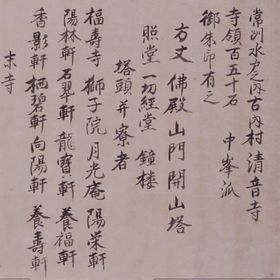 常刕水戸之内古内村清音寺
寺領百五十石　中峯派
御朱印有之
方丈 佛殿 山門 開山塔
照堂 一切経堂 鐘楼
塔頭并寮者
福壽寺 獅子院 月光庵 陽栄軒
陽林軒 石翠軒 龍寳軒 養福軒
香影軒 栖碧軒 向陽軒 養壽軒
末寺